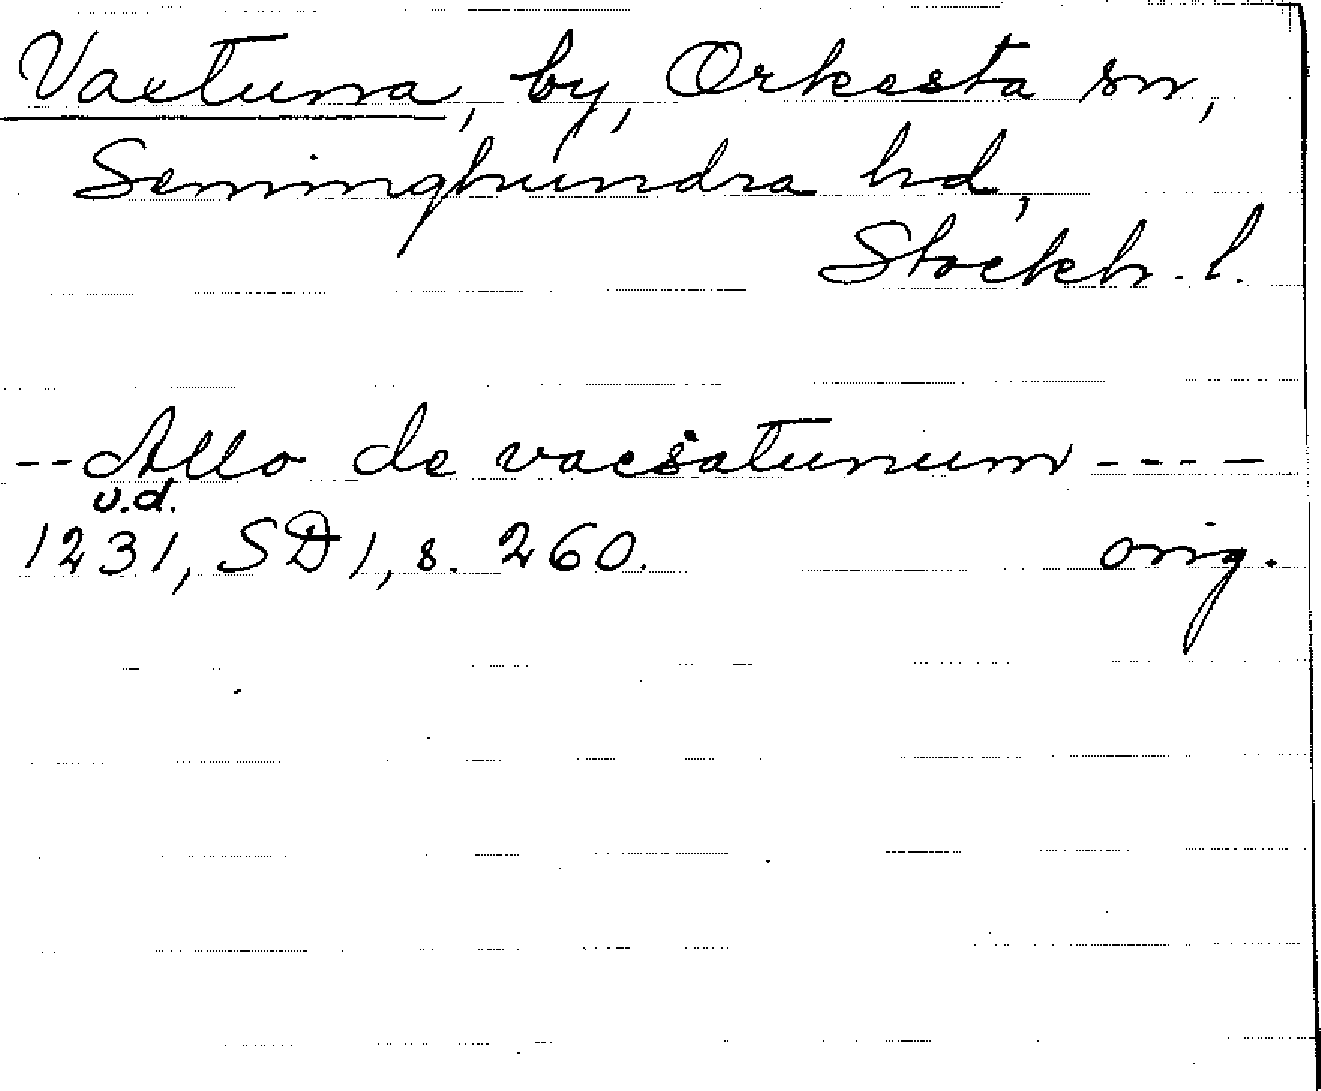 Vaetuna, by, Orkesta sn,
Seminghundra hd,
Stockh. l.
-- Allo de vacsatunum ----
u.d.
1231, SD 1, s. 260. orig.